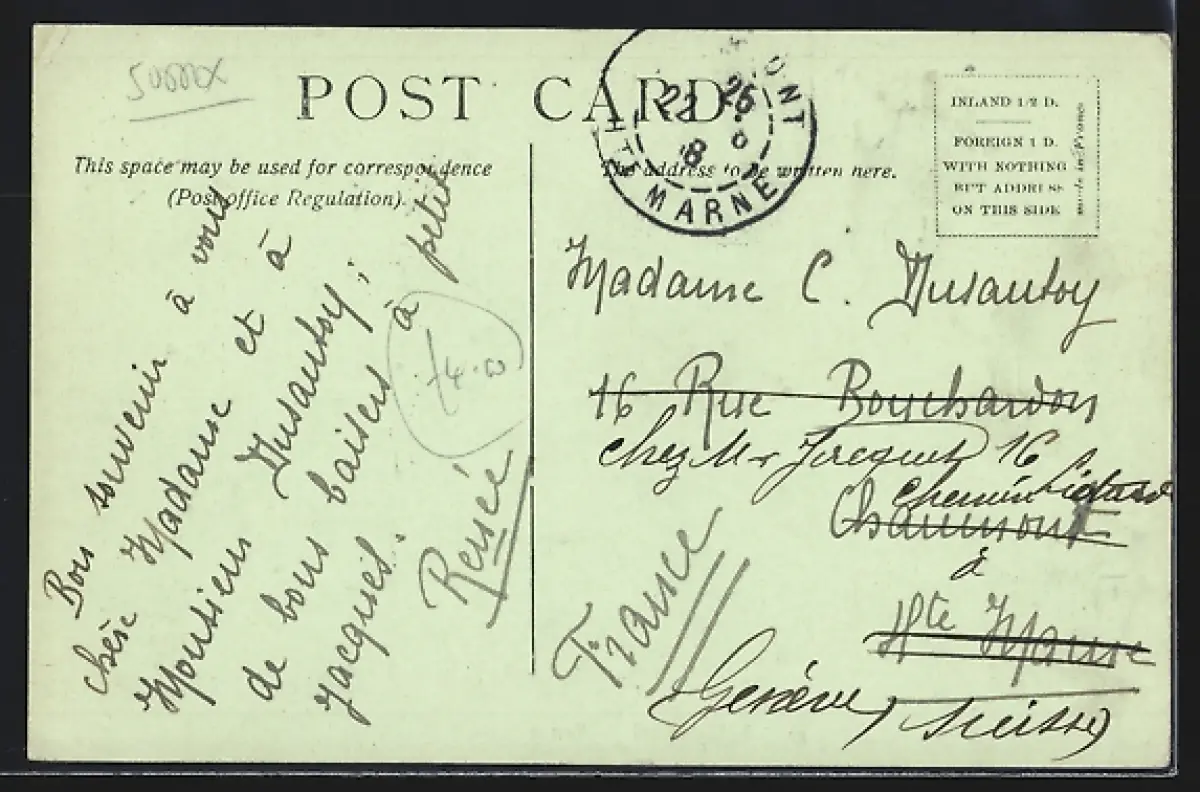 POST CARD.
This space may be used for correspondence
(Post office Regulation).
The address to be written here.
INLAND 1/2 D.
FOREIGN 1 D.
WITH NOTHING
BUT ADDRESS
ON THIS SIDE
made in France
22 - 8
26
HTE MARNE
Bon souvenir à vous
chère Madame et à
Monsieur Dusautoy;
de bons baisers à petit
Jacques.
Renée
Madame C. Dusautoy
16 Rue Bouchardon
Chez Mr Jacquet 16
Chemin
Chaumont
à
Hte Marne
France
Genève, Suisse